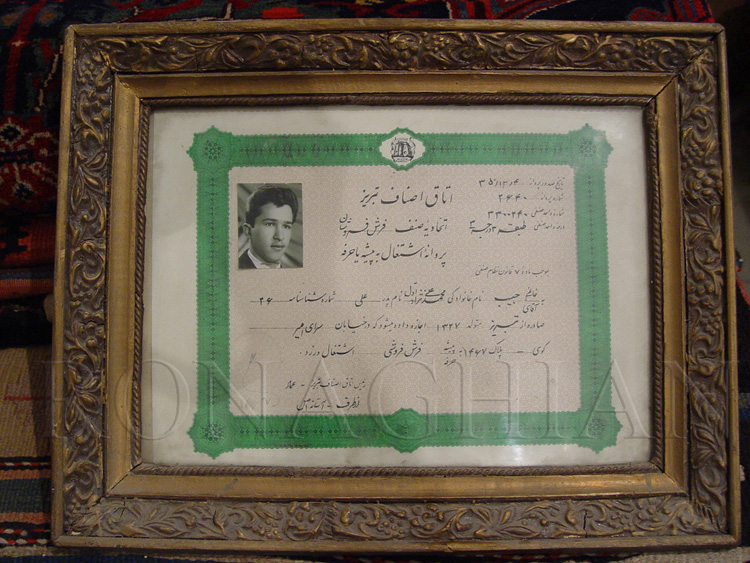 اتاق اصناف تبریز
تاریخ صدور پروانه
شماره پروانه ۲۶۴۰
اتحادیه صنف فرش فروشان
شماره واحد صنفی ۳۳۰۰۲۴۰
درجه واحد صنفی طبقه ۳ درجه ۳
پروانه اشتغال به پیشه یا حرفه
بموجب ماده ۷ قانون نظام صنفی
به خانم آقای حبیب نام خانوادگی نام پدر علی شماره شناسنامه ۲۶
صادره از تبریز متولد ۱۳۲۷ اجازه داده میشود که در خیابان سرای میر
کوی - پلاک ۱۴۶۷ به پیشه حرفه فرش فروشی اشتغال ورزد.
رئیس اتاق اصناف تبریز -
از طرف -
RONAGHIAN